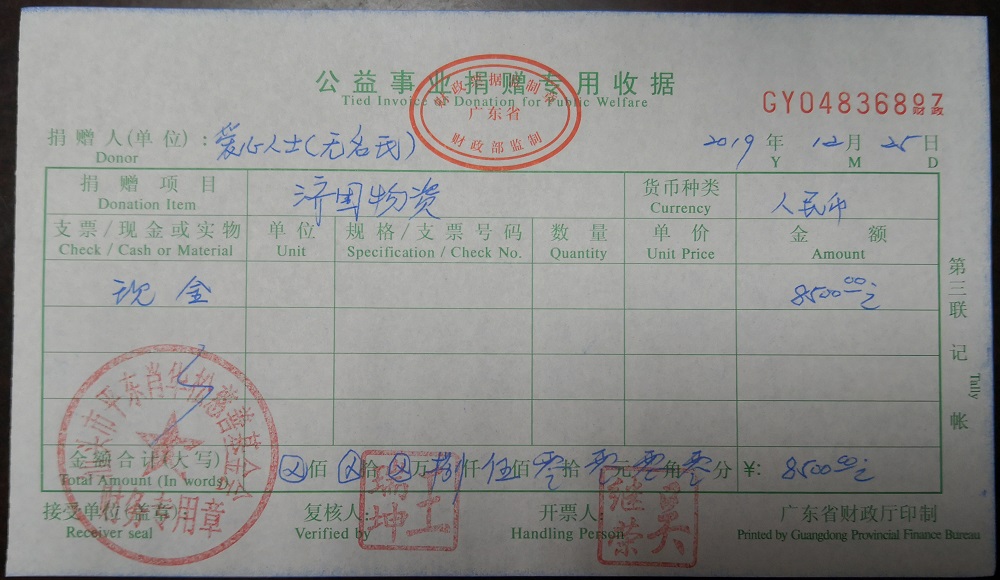 公益事业捐赠专用收据
Tied Invoice of Donation for Public Welfare
财政票据监制章
广东省
财政部监制
GY04836897 财政
捐赠人(单位): 爱心人士(无名氏) 2019 年 12 月 25 日
Donor Y M D
捐赠项目 济困物资 货币种类 人民币
Donation Item Currency
支票/现金或实物 单位 规格/支票号码 数量 单价 金额
Check / Cash or Material Unit Specification / Check No. Quantity Unit Price Amount
现金 8500.00元
第三联 记 Tally 帐
兴市平东肖华松慈善基金会
财务专用章
金额合计(大写) 佰 拾 万 捌仟 伍佰 零拾 零元 零角 零分 ¥: 8500.00元
Total Amount (In words)
接受单位(盖章) 复核人: 王瑞坤 开票人: 吴继荣 广东省财政厅印制
Receiver seal Verified by Handling Person Printed by Guangdong Provincial Finance Bureau